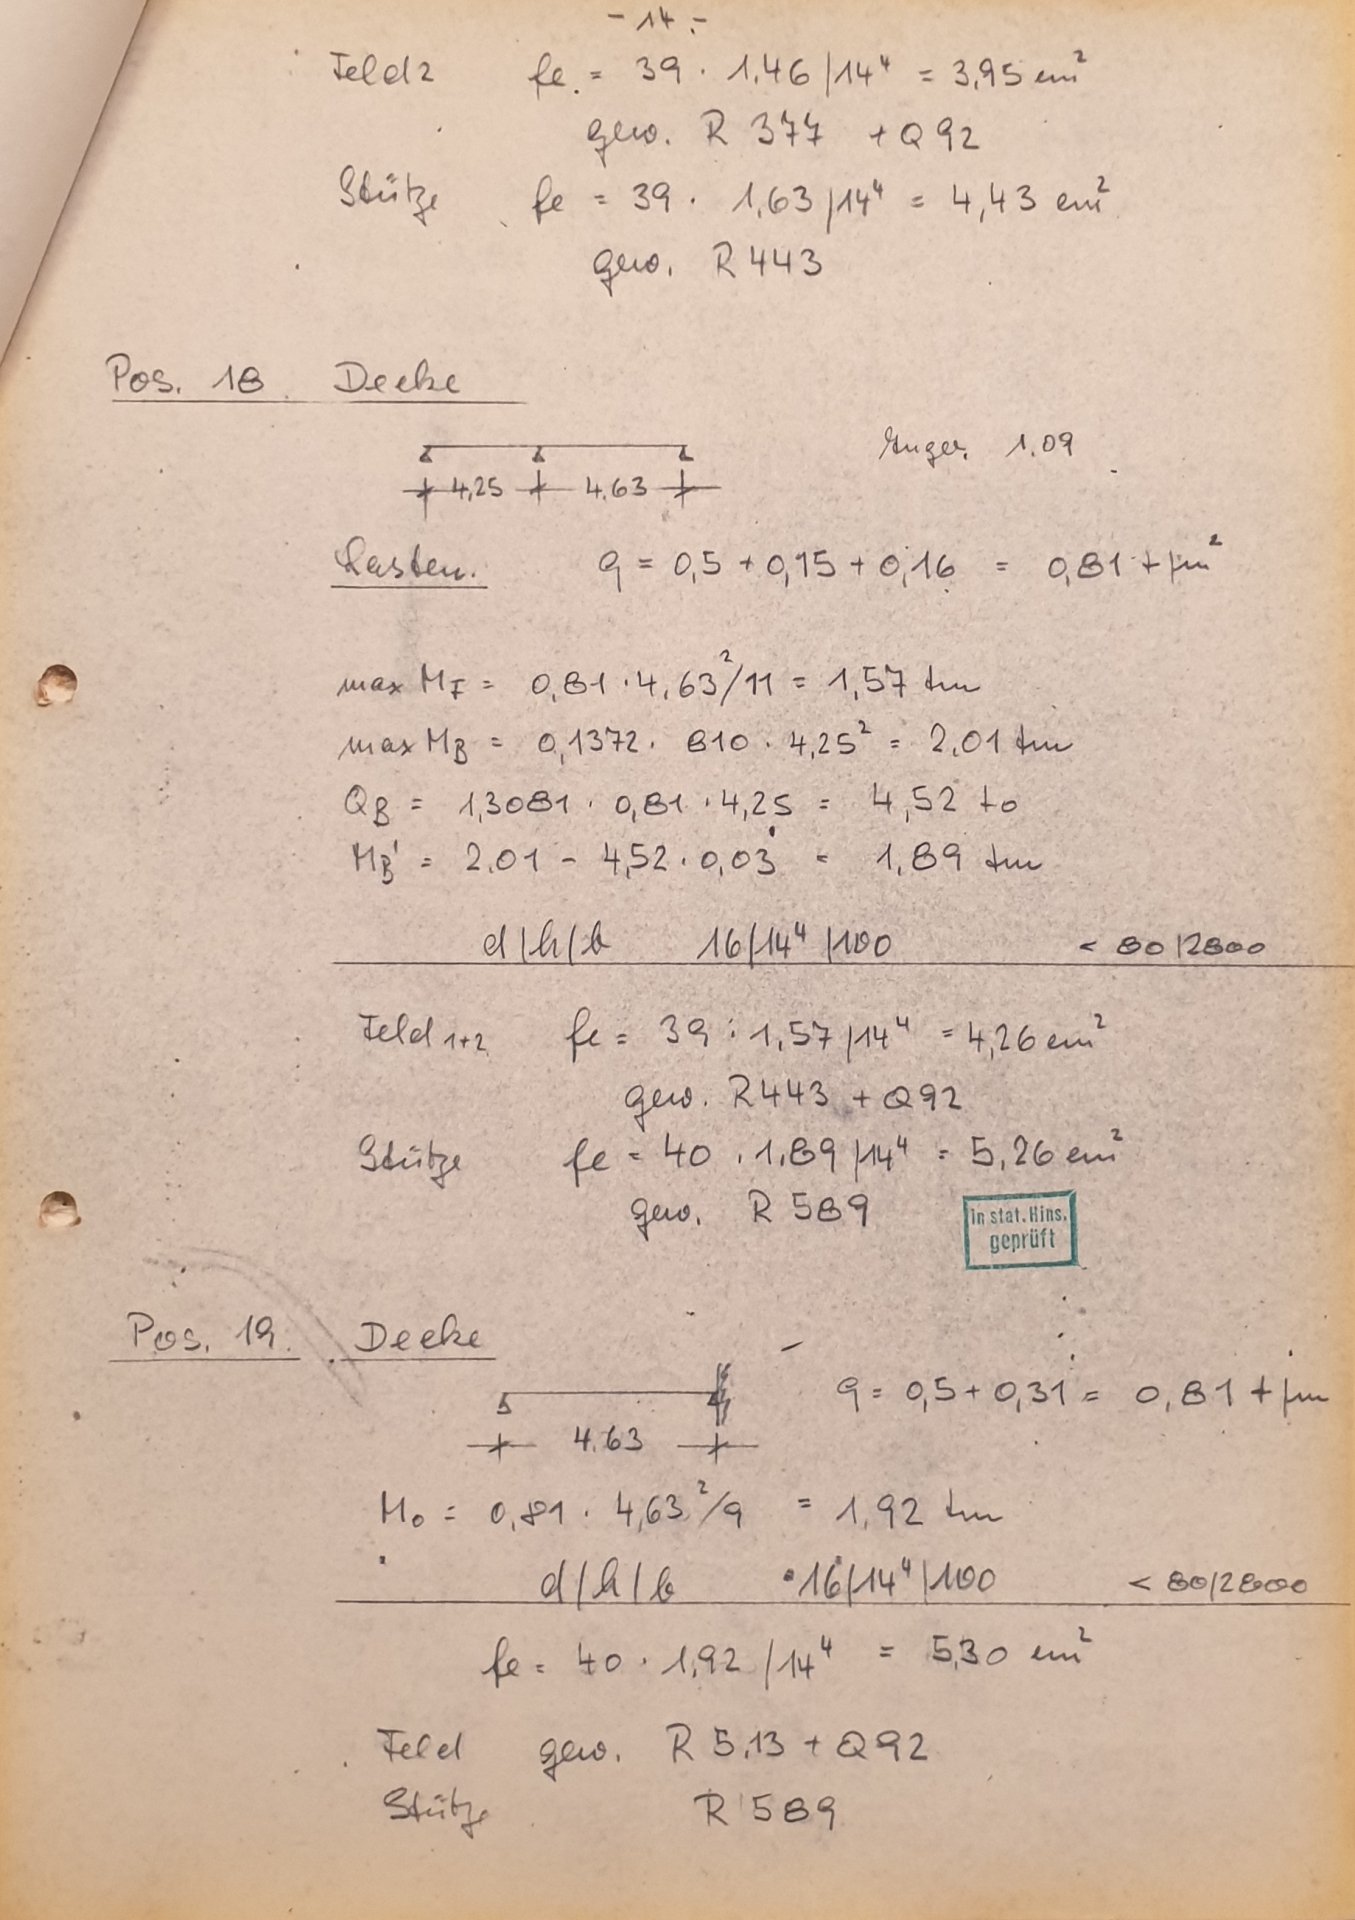 - 14 -
Feld 2 fe = 39 · 1,46 / 14⁴ = 3,95 cm²
gew. R 377 + Q 92
Stütze fe = 39 · 1,63 / 14⁴ = 4,43 cm²
gew. R 443
Pos. 18 Decke
4,25 4,63
1.09
Lasten. q = 0,5 + 0,15 + 0,16 = 0,81 t/m²
max MF = 0,81 · 4,63²/11 = 1,57 tm
max MB = 0,1372 · 810 · 4,25² = 2,01 tm
QB = 1,3081 · 0,81 · 4,25 = 4,52 to
MB' = 2,01 - 4,52 · 0,03 = 1,89 tm
d/h/b 16/14⁴/100 < 80/2800
Feld 1+2 fe = 39 · 1,57/14⁴ = 4,26 cm²
gew. R 443 + Q 92
Stütze fe = 40 · 1,89/14⁴ = 5,26 cm²
gew. R 589
in stat. Hins.
geprüft
Pos. 19. Decke
q = 0,5 + 0,31 = 0,81 t/m
4.63
M₀ = 0,81 · 4,63²/9 = 1,92 tm
d/h/b 16/14⁴/100 < 80/2800
fe = 40 · 1,92 / 14⁴ = 5,30 cm²
Feld gew. R 5,13 + Q 92
Stütze R 589